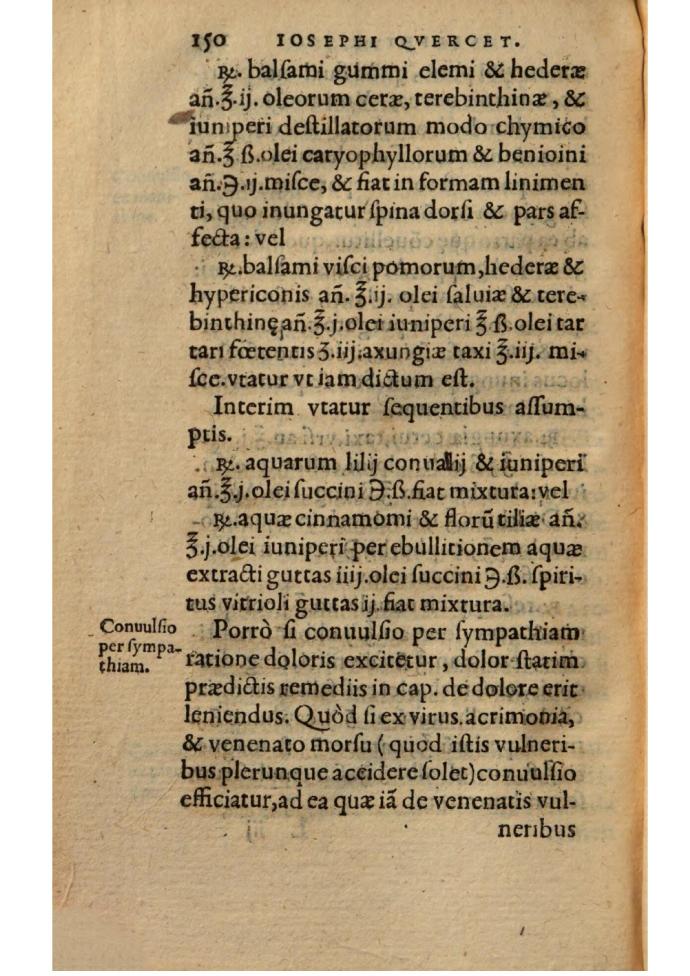 150 IOSEPHI QVERCET.
℞. balſami gummi elemi & hederæ
añ.℥.ij. oleorum ceræ, terebinthinæ, &
iuniperi deſtillatorum modo chymico
añ.℥ ß.olei caryophyllorum & benioini
añ.℈.ij.miſce, & fiat in formam linimen
ti, quo inungatur ſpina dorſi & pars af-
fecta: vel
℞.balſami viſci pomorum,hederæ &
hypericonis añ. ℥.ij. olei ſaluiæ & tere-
binthinę añ.℥.j.olei iuniperi ℥ ß.olei tar
tari fœtentis ʒ.iij.axungiæ taxi ℥.iij. mi-
ſce.vtatur vt iam dictum eſt.
Interim vtatur ſequentibus aſſum-
ptis.
℞. aquarum lilij conuallij & iuniperi
añ.℥.j.olei ſuccini ℈.ß.fiat mixtura:vel
℞.aquæ cinnamomi & florũ tiliæ añ.
℥.j.olei iuniperi per ebullitionem aquæ
extracti guttas iiij.olei ſuccini ℈.ß. ſpiri-
tus vitrioli guttas ij.fiat mixtura.
Conuulſio
per ſympa-
thiam.
Porrò ſi conuulſio per ſympathiam
ratione doloris excitetur, dolor ſtatim
prædictis remediis in cap. de dolore erit
leniendus. Quòd ſi ex virus.acrimonia,
& venenato morſu ( quod iſtis vulneri-
bus plerunque accidere ſolet) conuulſio
efficiatur,ad ea quæ iã de venenatis vul-
neribus